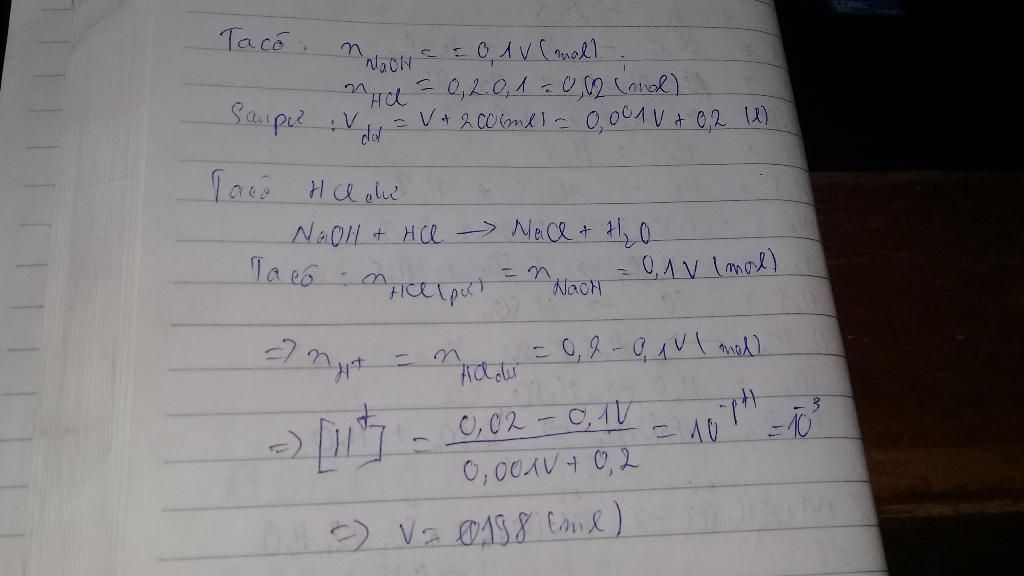 Ta có: n NaOH = = 0,1V (mol).
n HCl = 0,2.0,1 = 0,02 (mol)
Sau pư: V dd = V + 200(ml) = 0,001V + 0,2 (l)
Ta có HCl dư
NaOH + HCl → NaCl + H₂O
Ta có: n HCl(pư) = n NaOH = 0,1V (mol)
=> n H⁺ = n HCl dư = 0,2 - 0,1V (mol)
=> [H⁺] = (0,02 - 0,1V)/(0,001V + 0,2) = 10^-pH = 10^-3
=> V = 0,198 (ml)